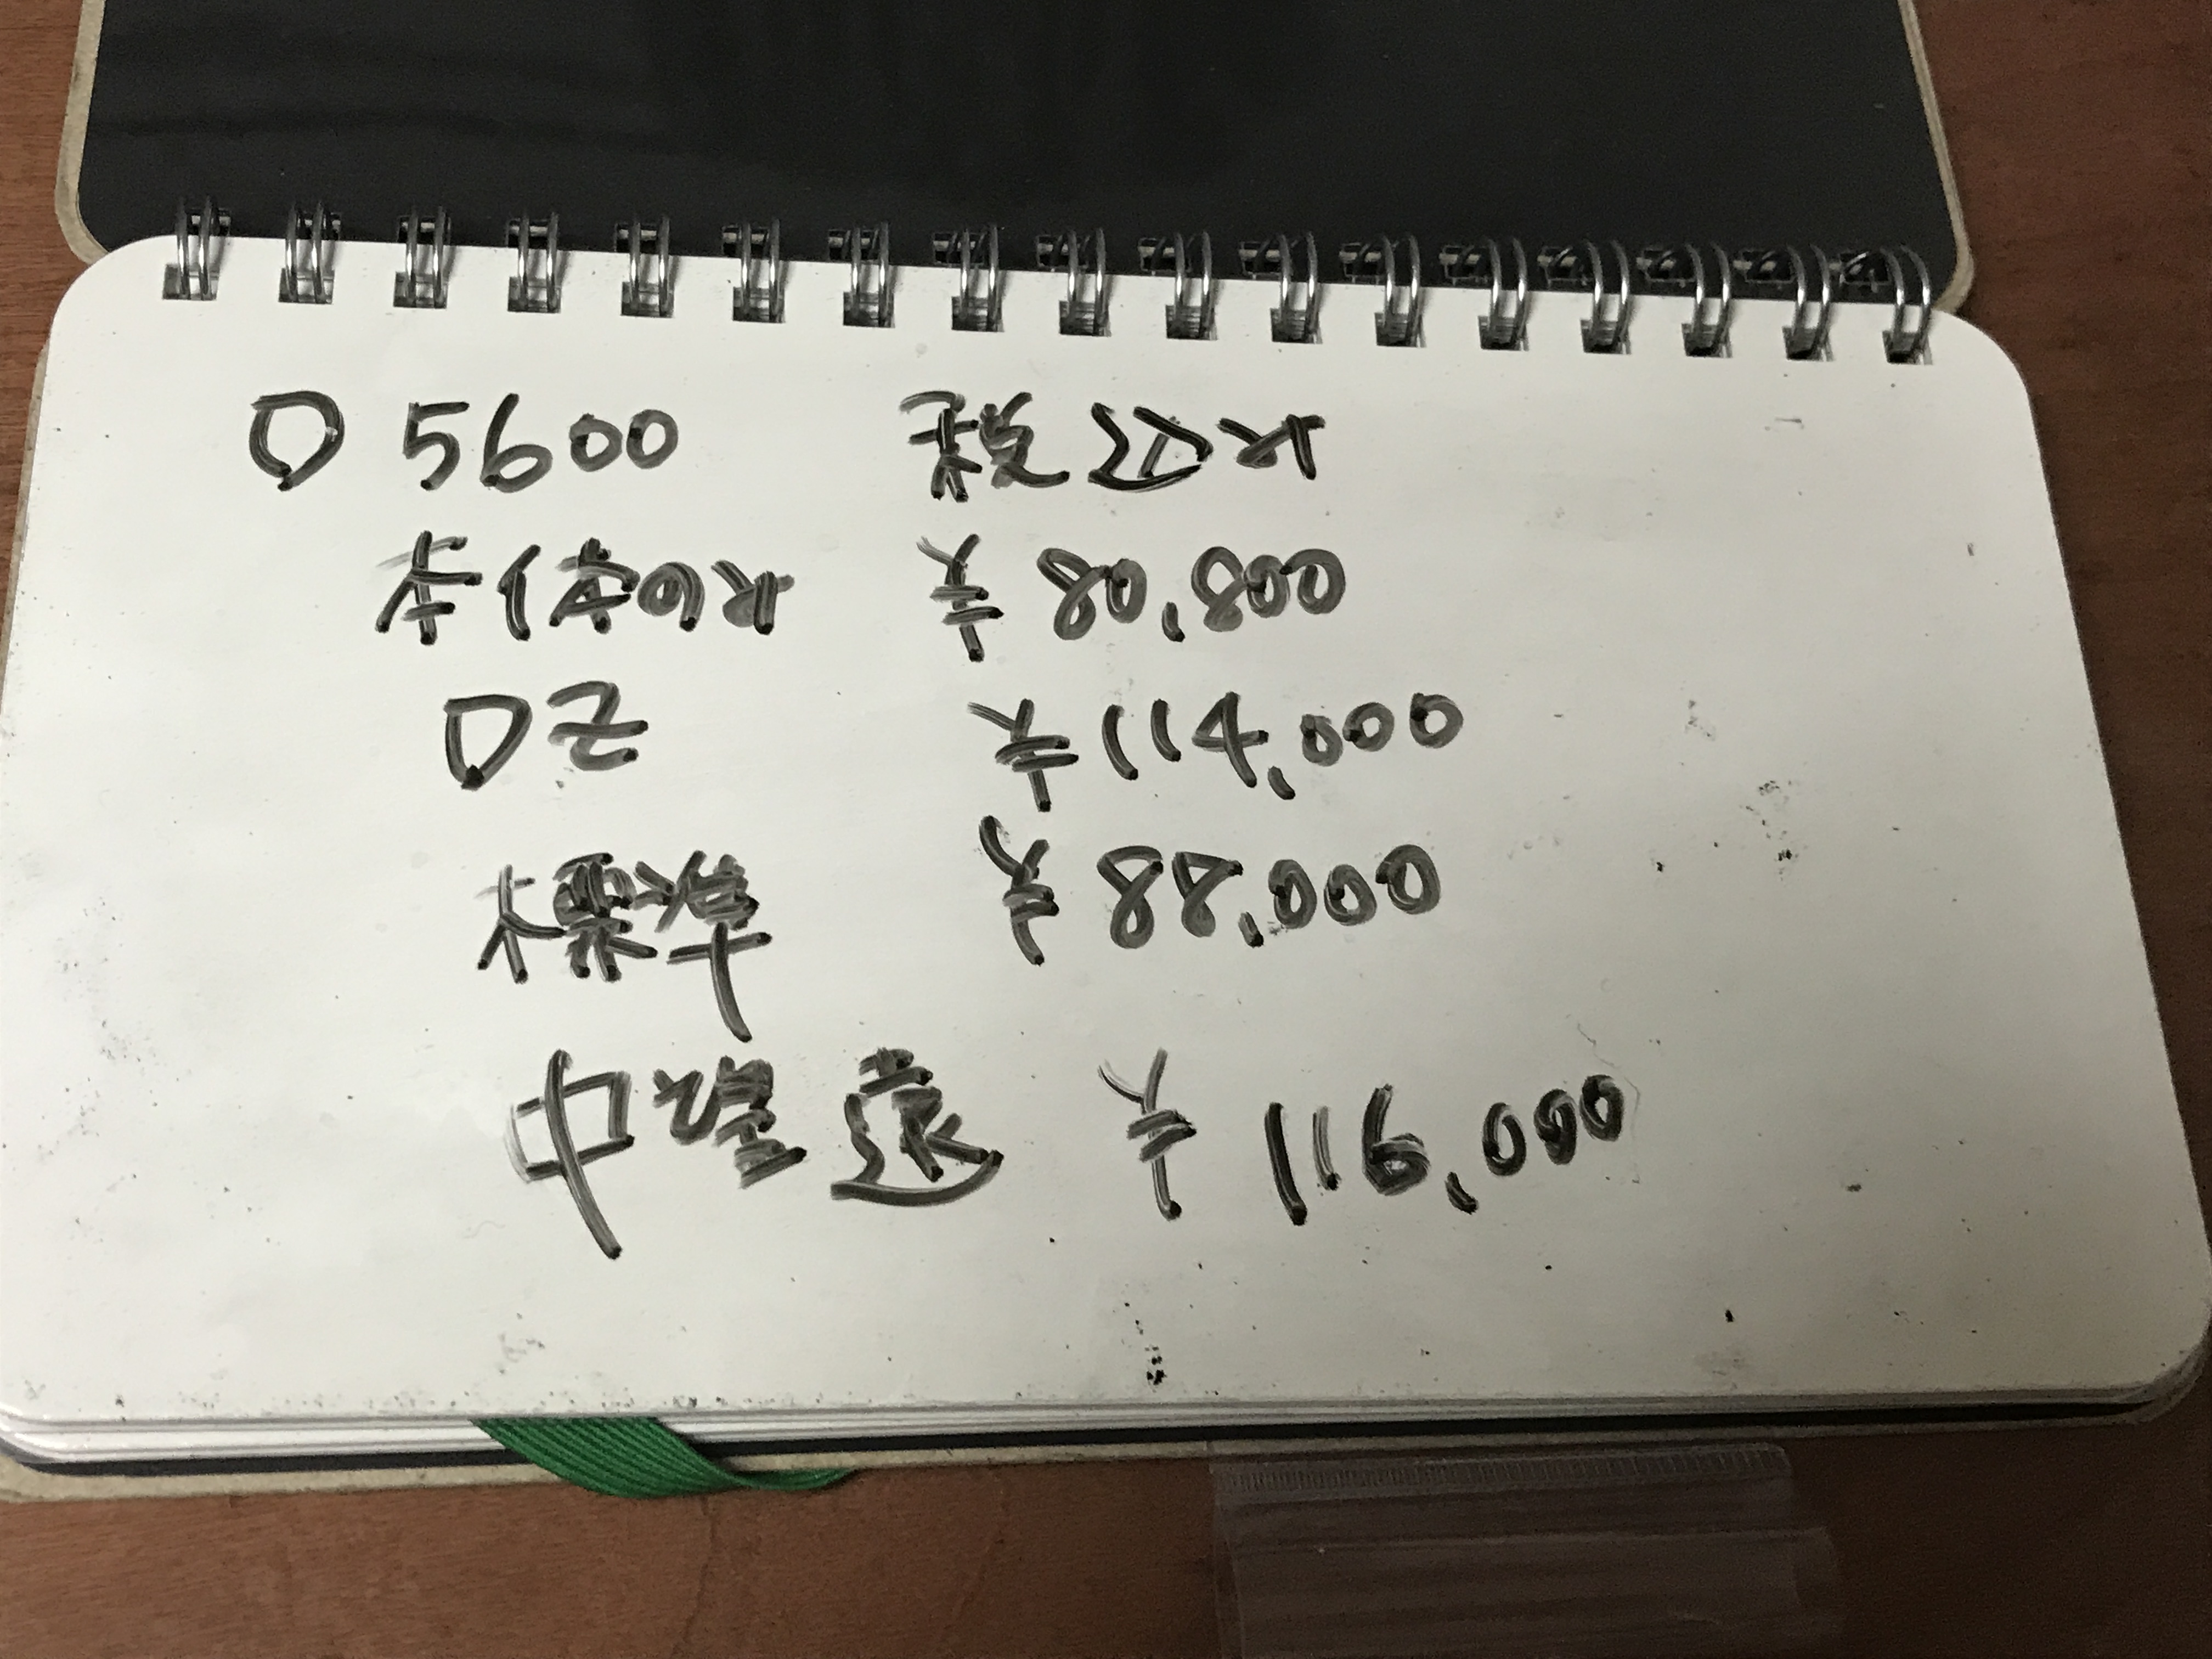 D5600 税込み
本体のみ ¥80,800
DZ ¥114,000
標準 ¥88,000
中望遠 ¥116,000